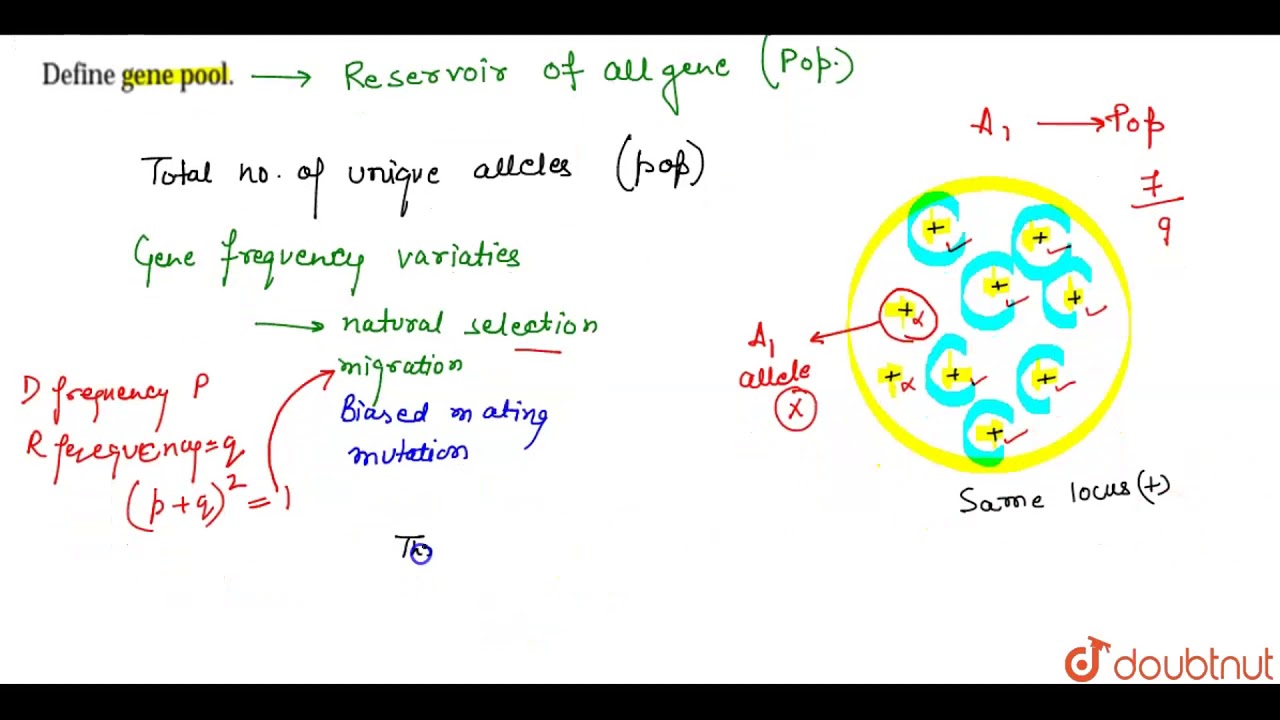 Define gene pool. → Reservoir of all gene (Pop.)
Total no. of unique alleles (pop)
Gene frequency variaties
→ natural selection
migration
Biased mating
mutation
D frequency P
R ferequency = q
(p+q)² = 1
Th
A₁ → Pop
7/9
A₁
allele
X
Same locus (+)
doubtnut